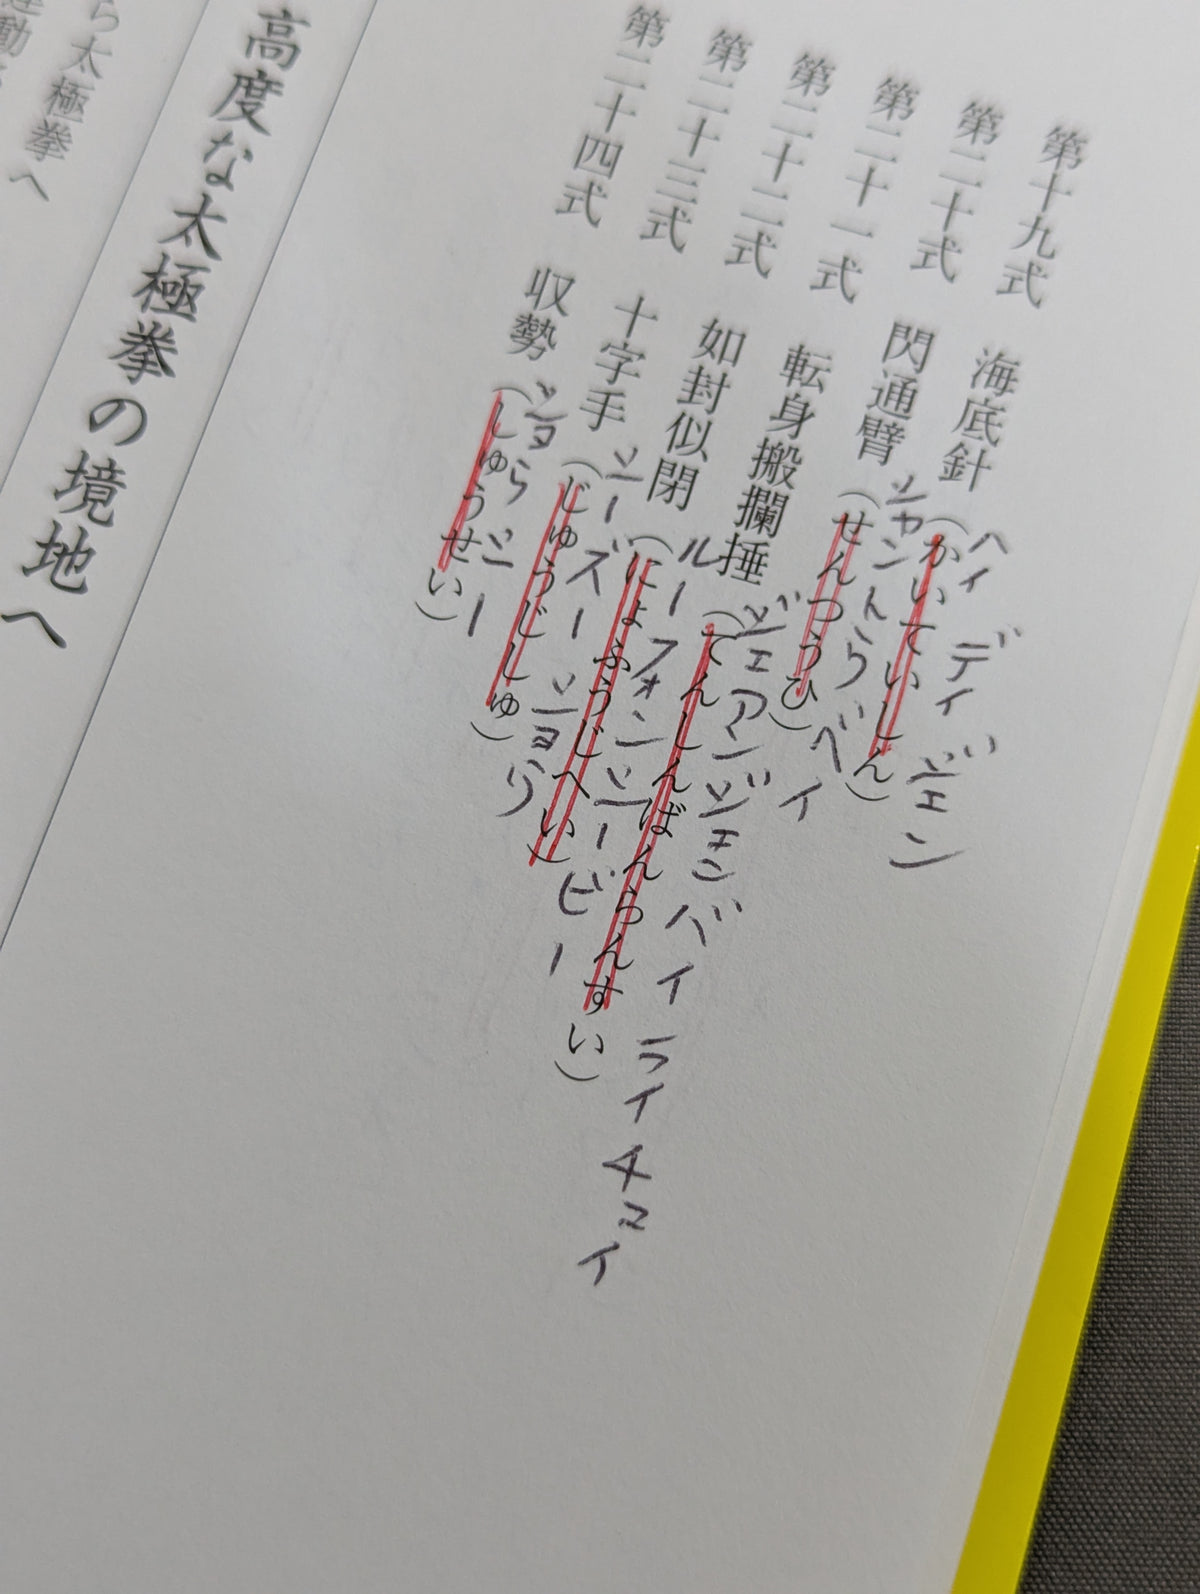 第十九式 海底針（かいていしん）
ヘイ ディ ジェン
第二十式 閃通臂（せんつうひ）
シャントウ ベイ
第二十一式 転身搬攔捶（てんしんばんらんすい）
ジェアンジェン バイ ライ チュイ
第二十二式 如封似閉（にょふうじへい）
ルーフォン シー ビー
第二十三式 十字手（じゅうじしゅ）
シーズー ショウ
第二十四式 収勢（しゅうせい）
ショウ シー
高度な太極拳の境地へ
ら太極拳へ